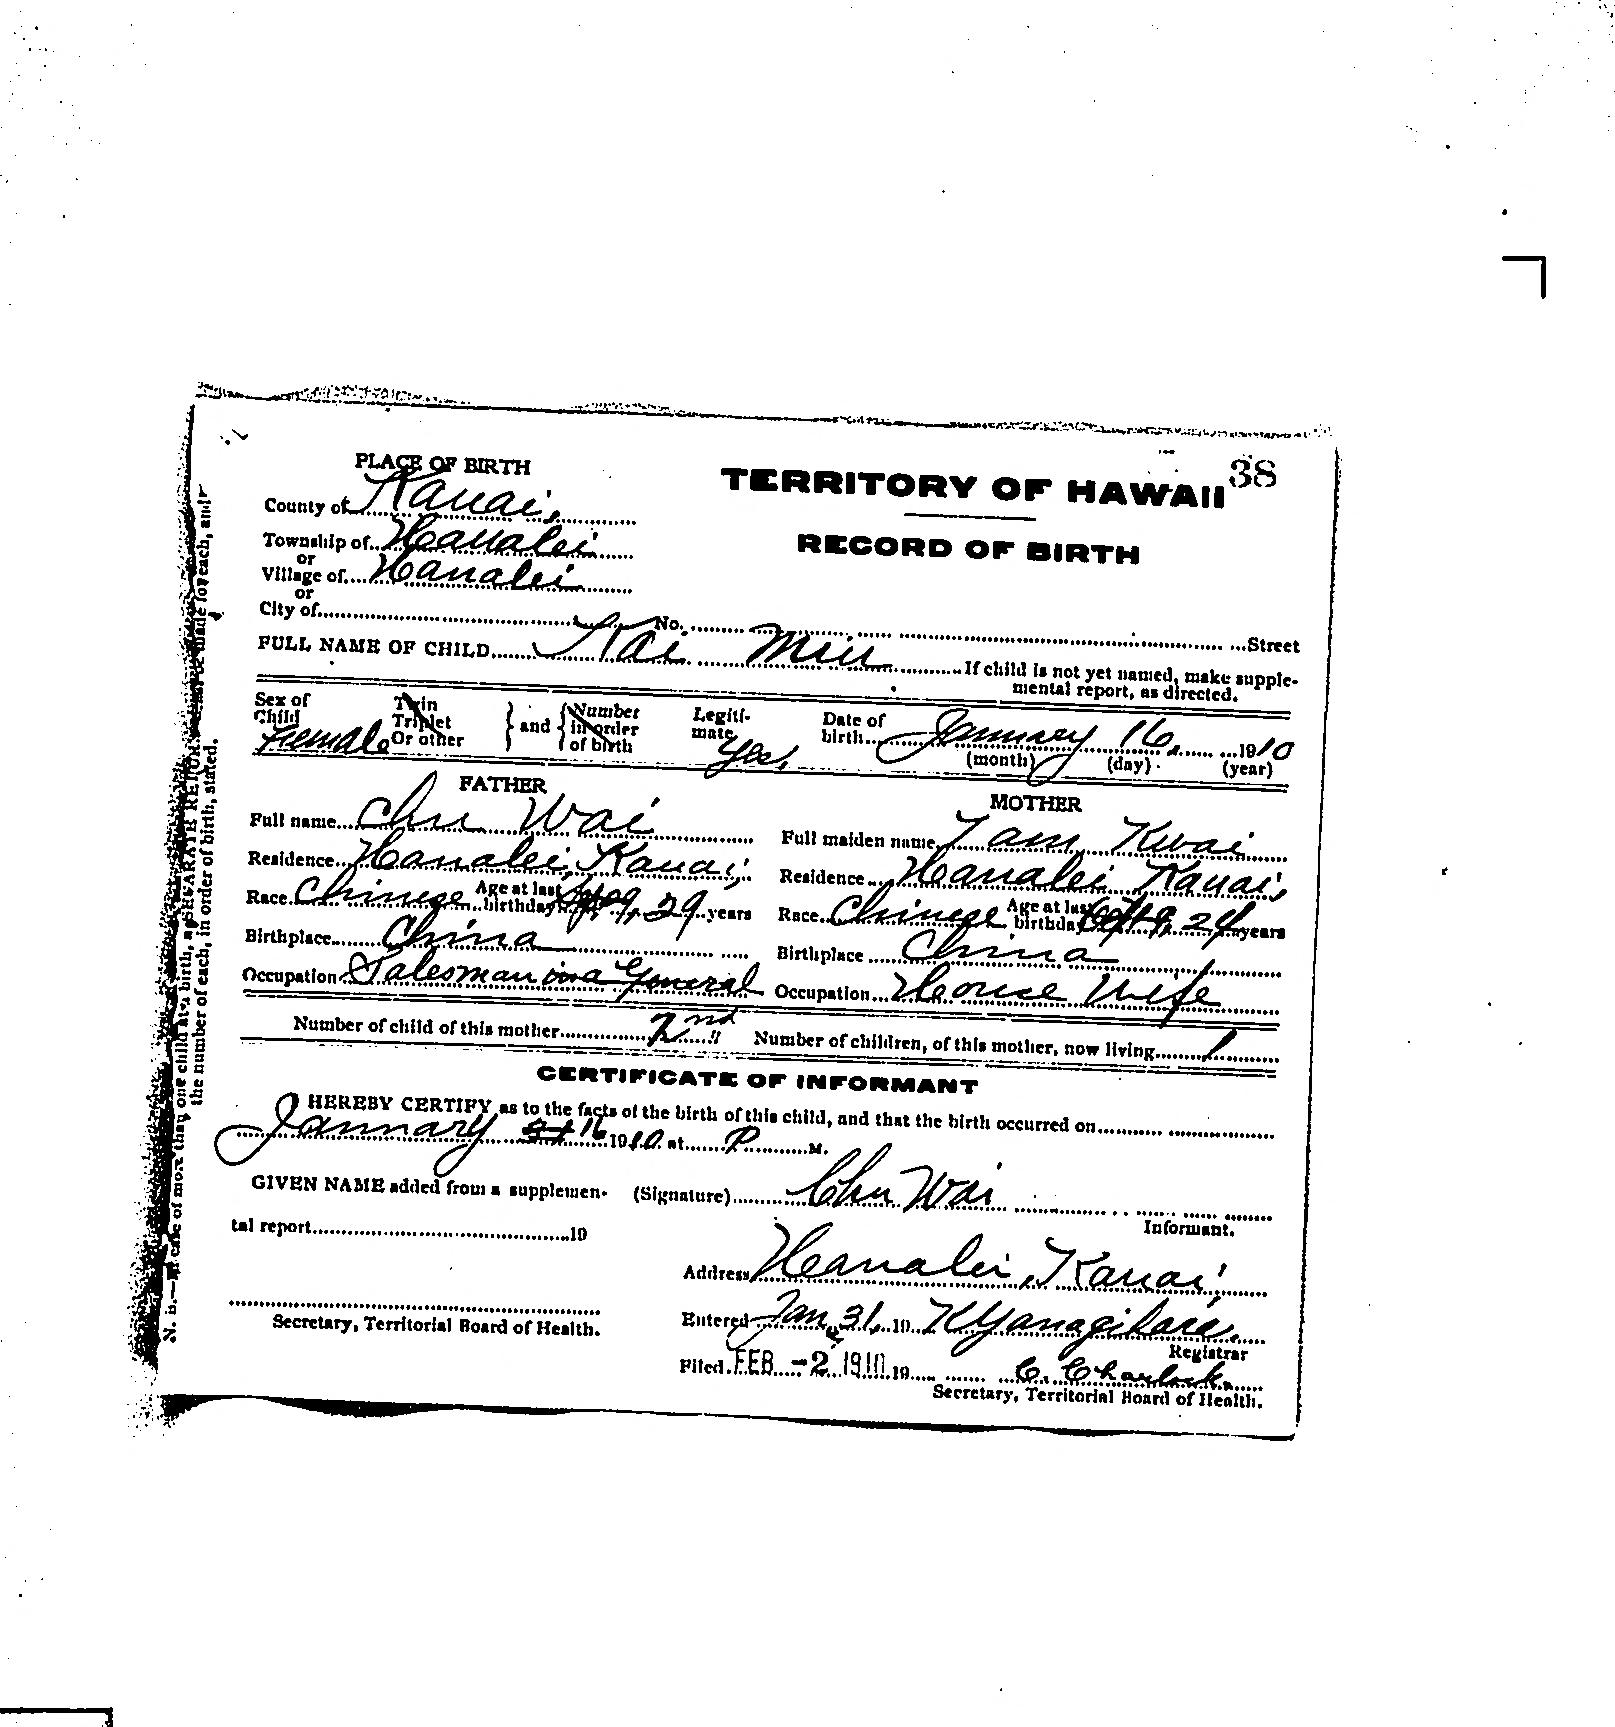 38
PLACE OF BIRTH
TERRITORY OF HAWAII
County of Kauai,
RECORD OF BIRTH
Township of Hanalei
or
Village of Hanalei
or
City of No. Street
FULL NAME OF CHILD Kai Miu If child is not yet named, make supple-
mental report, as directed.
Sex of Child Female
Twin Triplet Or other } and { Number in order of birth
Legiti-mate Yes,
Date of birth January 16, 1910
(month) (day) (year)
FATHER
Full name Chu Wai
Residence Hanalei, Kauai,
Race Chinese Age at last birthday 29 years
Birthplace China
Occupation Salesman in a General
MOTHER
Full maiden name Tam Kwai
Residence Hanalei Kauai,
Race Chinese Age at last birthday 24 years
Birthplace China
Occupation House Wife
Number of child of this mother 2nd Number of children, of this mother, now living 1
CERTIFICATE OF INFORMANT
I HEREBY CERTIFY as to the facts of the birth of this child, and that the birth occurred on
January 16 1910. at P. M.
GIVEN NAME added from a supplemen-
tal report 19
Secretary, Territorial Board of Health.
(Signature) Chu Wai
Informant.
Address Hanalei, Kauai,
Entered Jan, 31, 19 K Yanagihara.
Registrar
Filed FEB -2 1910 19 C. Charlock.
Secretary, Territorial Board of Health.
N. B.—In case of more than one child at a birth, a SEPARATE RETURN must be made for each, and
the number of each, in order of birth, stated.